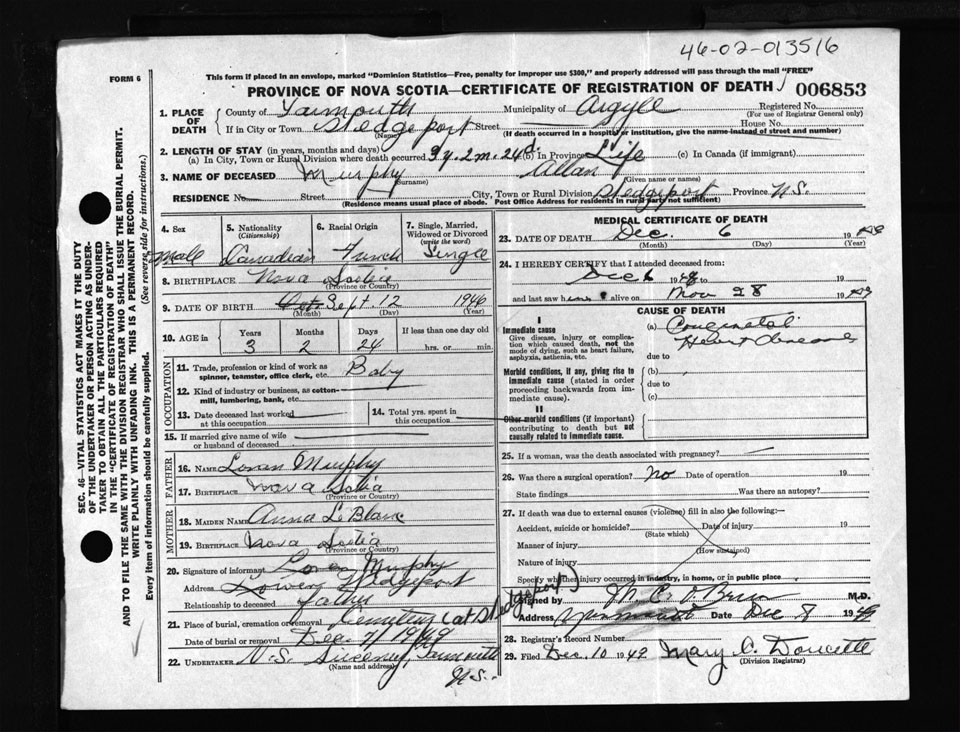 46-02-013516
FORM 6
This form if placed in an envelope, marked "Dominion Statistics—Free, penalty for improper use $300," and properly addressed will pass through the mail "FREE"
PROVINCE OF NOVA SCOTIA—CERTIFICATE OF REGISTRATION OF DEATH 006853
SEC. 46—VITAL STATISTICS ACT MAKES IT THE DUTY
OF THE UNDERTAKER OR PERSON ACTING AS UNDER-
TAKER TO OBTAIN ALL THE PARTICULARS REQUIRED
IN THE "CERTIFICATE OF REGISTRATION OF DEATH"
AND TO FILE THE SAME WITH THE DIVISION REGISTRAR WHO SHALL ISSUE THE BURIAL PERMIT.
WRITE PLAINLY WITH UNFADING INK. THIS IS A PERMANENT RECORD.
Every item of information should be carefully supplied. (See reverse side for instructions.)
1. PLACE OF DEATH County of Yarmouth Municipality of Argyle Registered No.
(For use of Registrar General only)
If in City or Town Wedgeport Street House No.
(Name) (If death occurred in a hospital or institution, give the name instead of street and number)
2. LENGTH OF STAY (in years, months and days)
(a) In City, Town or Rural Division where death occurred 3 y. 2 m. 24 d. (b) In Province Life (c) In Canada (if immigrant)
3. NAME OF DECEASED Murphy Allan
(Surname) (Given name or names)
RESIDENCE No. Street City, Town or Rural Division Wedgeport Province N.S.
(Residence means usual place of abode. Post Office Address for residents in rural parts not sufficient)
4. Sex
Male
5. Nationality
(Citizenship)
Canadian
6. Racial Origin
French
7. Single, Married,
Widowed or Divorced
(write the word)
Single
8. BIRTHPLACE Nova Scotia
(Province or Country)
9. DATE OF BIRTH Oct. Sept. 12 1946
(Month) (Day) (Year)
10. AGE in Years Months Days If less than one day old
3 2 24 hrs. or min.
OCCUPATION
11. Trade, profession or kind of work as
spinner, teamster, office clerk, etc. Baby
12. Kind of industry or business, as cotton-
mill, lumbering, bank, etc.
13. Date deceased last worked
at this occupation
14. Total yrs. spent in
this occupation
15. If married give name of wife
or husband of deceased
FATHER
16. NAME Loran Murphy
17. BIRTHPLACE Nova Scotia
(Province or Country)
MOTHER
18. MAIDEN NAME Anna LeBlanc
19. BIRTHPLACE Nova Scotia
(Province or Country)
20. Signature of informant Loran Murphy
Address Lower Wedgeport
Relationship to deceased father
21. Place of burial, cremation or removal Cemetery (at Wedgeport)
Date of burial or removal Dec. 7/1949
22. UNDERTAKER N.S. Sweeney, Yarmouth
(Name and address) N.S.
MEDICAL CERTIFICATE OF DEATH
23. DATE OF DEATH Dec. 6 1949
(Month) (Day) (Year)
24. I HEREBY CERTIFY that I attended deceased from:
Dec 6 1949 to 19
and last saw him alive on Nov 28 1949
CAUSE OF DEATH
I
Immediate cause
Give disease, injury or complica-
tion which caused death, not the
mode of dying, such as heart failure,
asphyxia, asthenia, etc.
(a) Congenital
Heart disease
due to
Morbid conditions, if any, giving rise to
immediate cause (stated in order
proceeding backwards from im-
mediate cause).
(b)
due to
(c)
II
Other morbid conditions (if important)
contributing to death but not
causally related to immediate cause.
25. If a woman, was the death associated with pregnancy?
26. Was there a surgical operation? No Date of operation 19
State findings Was there an autopsy?
27. If death was due to external causes (violence) fill in also the following:—
Accident, suicide or homicide? Date of injury 19
(State which)
Manner of injury
(How sustained)
Nature of injury
Specify whether injury occurred in industry, in home, or in public place
Signed by M. C. O'Brien M.D.
Address Yarmouth Date Dec 8 1949
28. Registrar's Record Number
29. Filed Dec. 10 1949 Mary C. Doucette
(Division Registrar)